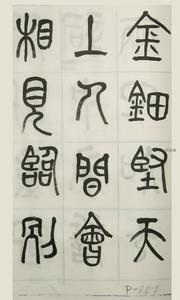 金鈿堅天
上人間會
相見臨別
P-251